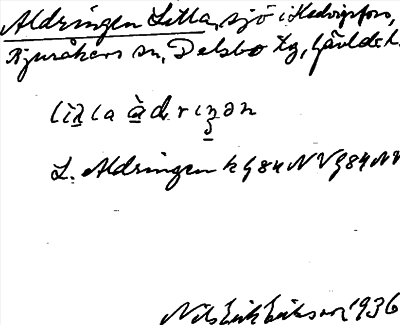 Aldringen Lilla, sjö i Hedvigsfors,
Bjuråkers sn, Delsbo tg, Gävleb. l.
L. Aldringen k g84 NV g84 NV
Nils Erik Eriksson 1936